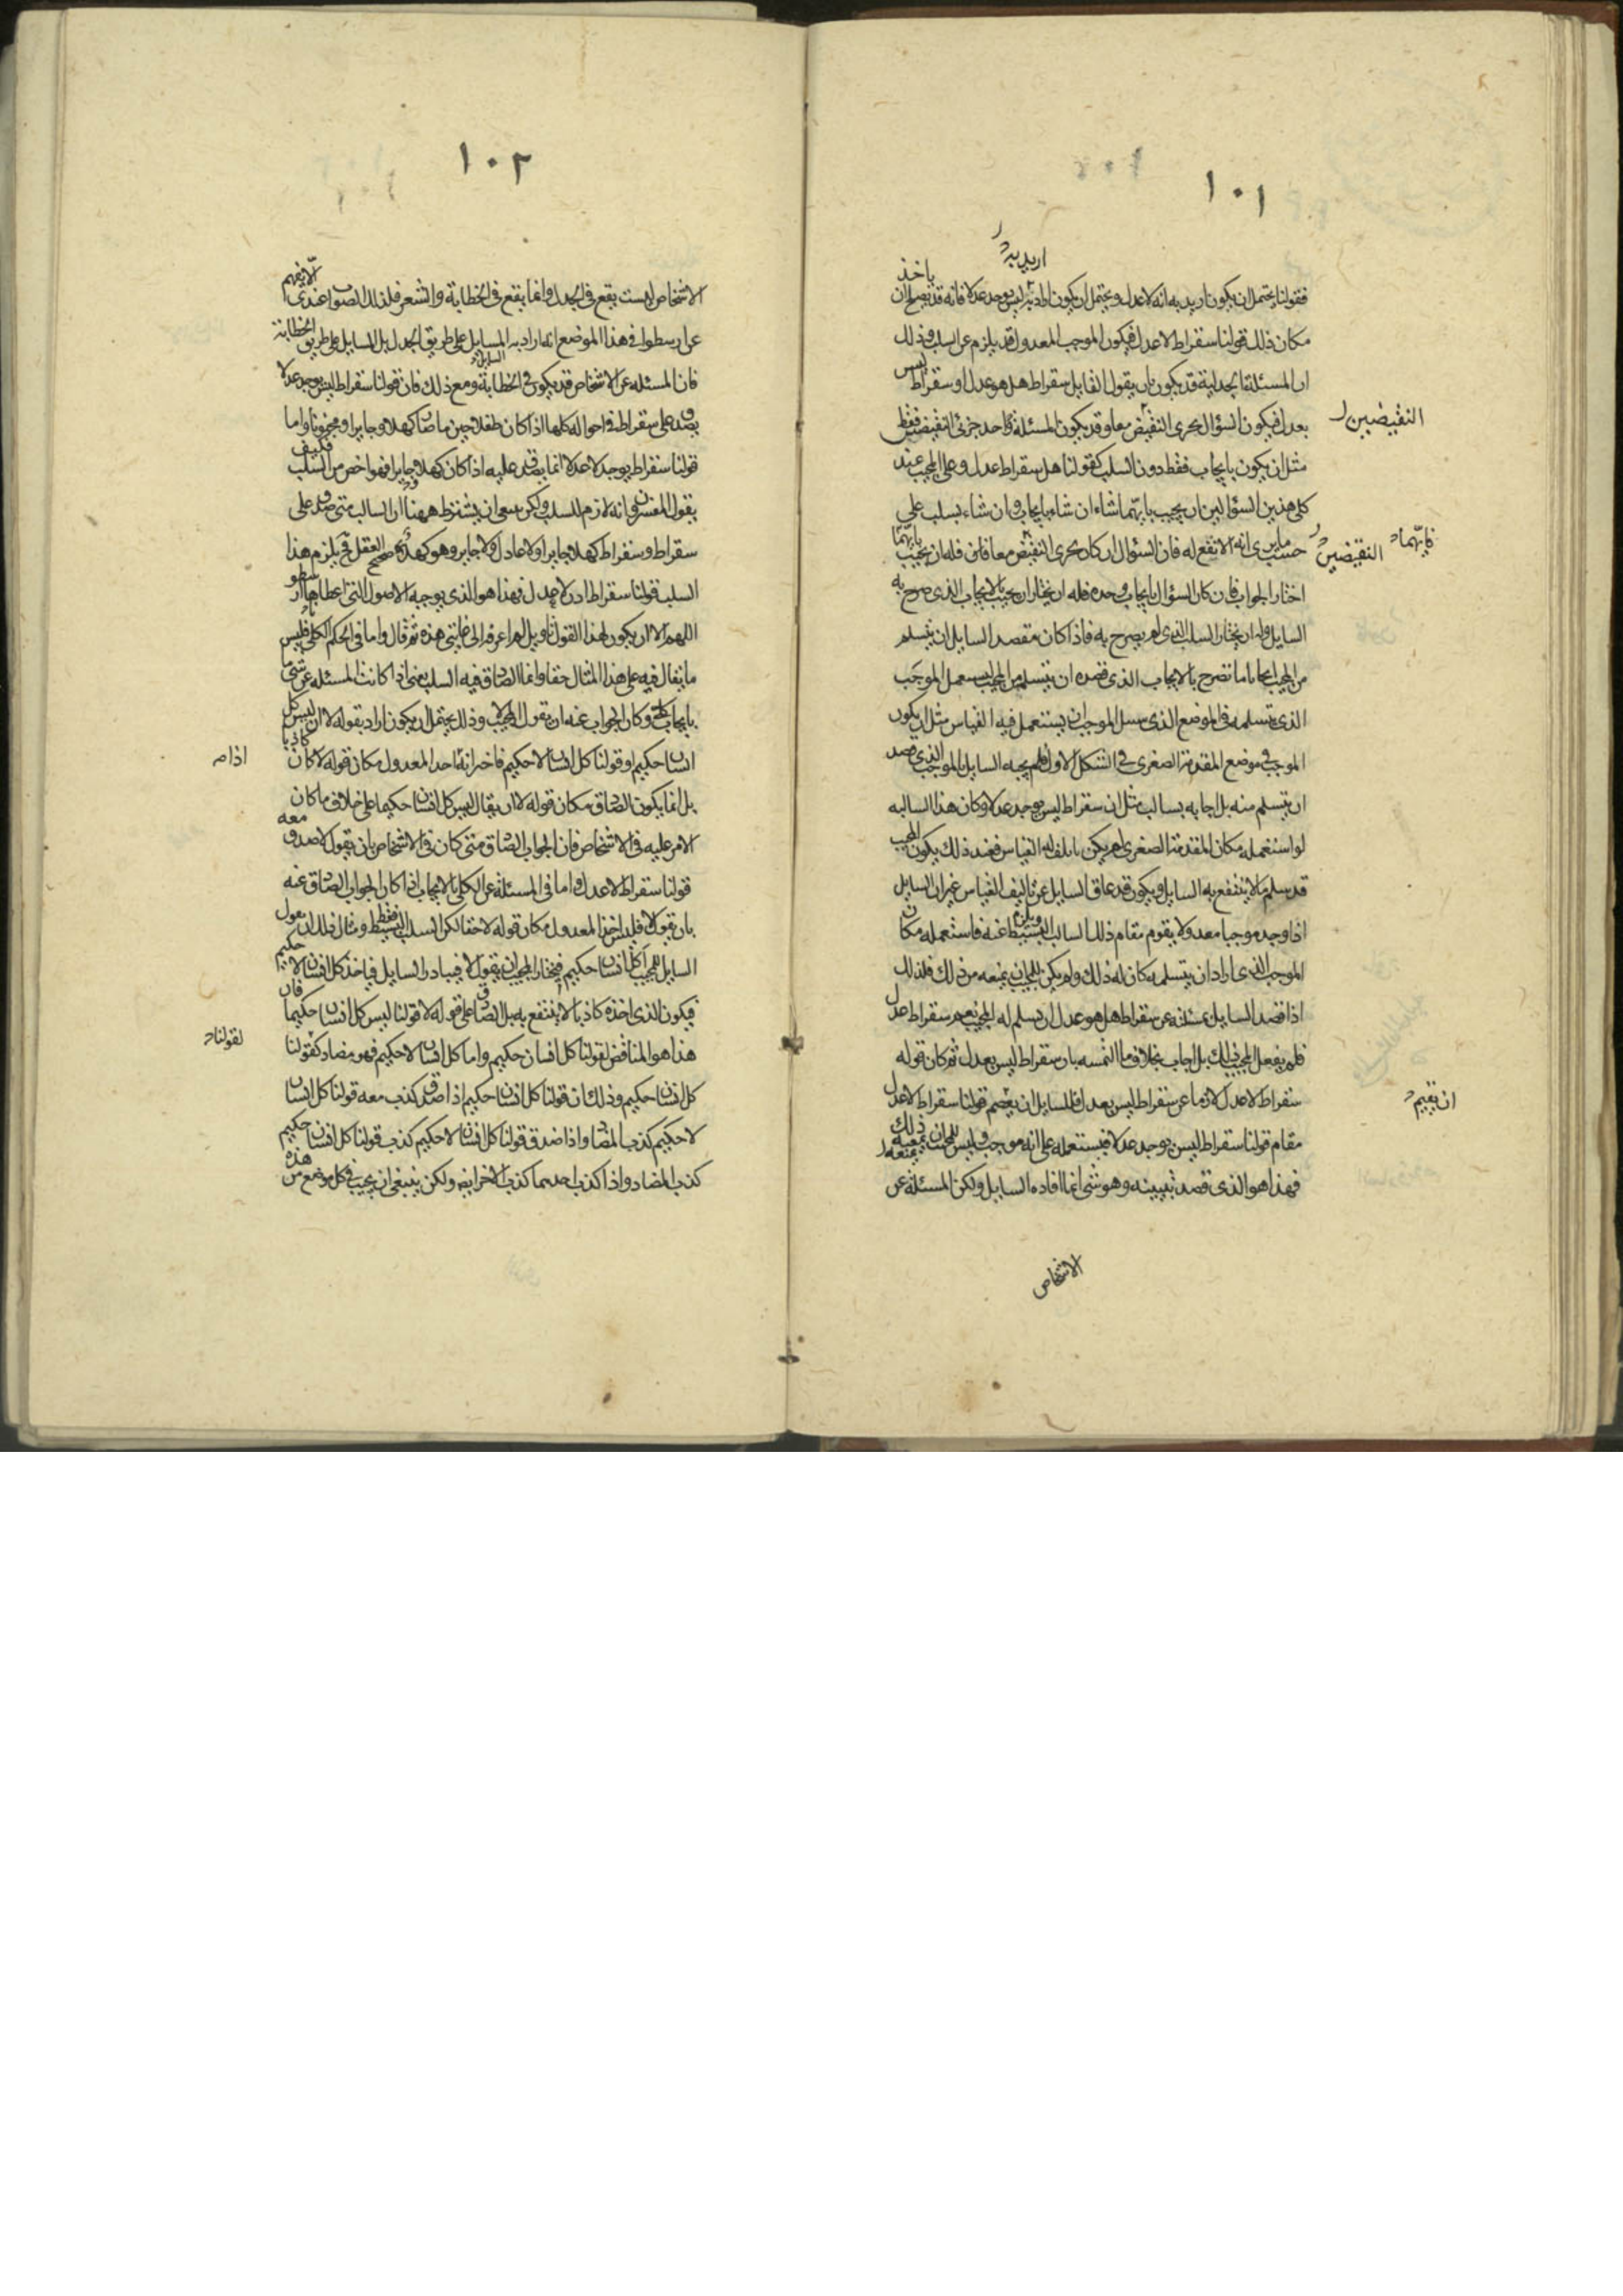 ١٠١
اريد به
فقولنا يحتمل ان يكون اريد به انه لا عدل ويحتمل ان يكون اراد به ليس يوجد عدلا فانه قد يصلح ان ياخذ
مكان ذلك قولنا سقراط لا عدل فيكون الموجب المعدول قد يلزم عن السلب وذلك
ان المسئلة الجدلية قد يكون بان يقول القايل سقراط هل هو عدل او سقراط ليس
بعدل فيكون السؤال بحرى النقيض معا وقد يكون المسئلة باحد جزئى النقيضين فقط
النقيضين
مثل ان يكون بايجاب فقط دون السلب كقولنا هل سقراط عدل وعلى المجيب عند
كلى هذين السؤالين ان يجيب بايهما شاء ان شاء بايجاب وان شاء بسلب على
حسب ما يرى انه الانفع له فان السؤال ان كان بحرى النقيض معا فله ان يجيب بايهما
النقيضين
فايهما
اختار الجواب فان كان السؤال بايجاب وحده فله ان يختار ان يجيب بالايجاب الذى صرح به
السايل وله ان يختار السلب الذى لم يصرح به فاذا كان مقصد السايل ان يتسلم
من المجيب ايجابا ما تصرح بالايجاب الذى قصده ان يتسلم من المجيب ليستعمل الموجب
الذى يتسلمه فى الموضع الذى سبيل الموجب ان يستعمل فيه القياس مثل ان يكون
الموجب فى موضع المقدمة الصغرى فى الشكل الاول فلم يجبه السايل بالموجب الذى قصد
ان يتسلم منه بل اجابه بسالب مثل ان سقراط ليس يوجد عدلا وكان هذا السالبه
لو استعمله مكان المقدمة الصغرى لم يكن ياتلف له القياس فعند ذلك يكون المجيب
قد سلم ما لا ينتفع به السايل ويكون قد عاق السايل عن تاليف القياس غير ان السايل
اذا وجد موجبا معدولا يقوم مقام ذلك السالب البسيط ويلزم عنه فاستعمله مكان
الموجب الذى اراد ان يتسلمه كان له ذلك ولم يكن للمجيب ان يمنعه من ذلك فلذلك
اذا قصد السايل بمسئلته عن سقراط هل هو عدل ان يسلم له المجيب نعم سقراط عدل
فلم يفعل المجيب ذلك بل اجاب بخلاف ما التمسه بان سقراط ليس بعدل ثم كان قوله
سقراط لا عدل لازما عن سقراط ليس بعدل فللسايل ان يقيم قولنا سقراط لا عدل
ان يقيم
مقام قولنا سقراط ليس يوجد عدلا فيستعمله على انه موجب وليس للمجيب ان يمنعه ذلك
فهذا هو الذى قصد تبيينه وهو شى انما افاده السايل ولكن المسئلة عن
الاشخاص
١٠٢
الاشخاص ليست يقع فى الجدل وانما يقع فى الخطابة والشعر فلذلك الصواب عندى الا يفهم
عن ارسطو فى هذا الموضع انه اراد به المسايل على طريق الجدل بل المسايل على طريق الخطابة
فان المسئله عن الاشخاص قد يكون فى الخطابة ومع ذلك فان قولنا سقراط ليس يوجد عدلا
يصدق على سقراط فى احواله كلها اذا كان طفلا حين ما صار كهلا وجايرا ومجنونا واما
قولنا سقراط يوجد لا عدلا انما يصدق عليه اذا كان كهلا وجايرا فهو اخص من السلب فكيف
يقول المفسرون انه لازم للسلب ولكن ينبغى ان يشترط ههنا ان السالب متى صدق على
سقراط وسقراط كهلا جايرا ولا عادل ولا جاير وهو كهل صحيح العقل فح يلزم هذا
السلب قولنا سقراط لا عدل فهذا هو الذى يوجبه الاصول التى اعطاها ارسطو
اللهم الا ان يكون لهذا القول تاويل لم اعرفه الى غايتى هذه ثم قال واما فى الحكم الكلى فليس
ما يقال فيه على هذا المثال حقا وانما الصادق فيه السلب يعنى اذا كانت المسئله عن شى ما
بايجاب كلى وكان الجواب عنه ان يقول المجيب لا وذلك يحتمل ان يكون اراد بقوله لا ان ليس كل
انسان حكيم او قولنا كل انسان لا حكيم فاخر انه اخذ المعدول مكان قوله لا كان كاذبا
اذا
بل انما يكون الصادق مكان قوله لا ان يقال ليس كل انسان حكيما على خلاف ما كان
الامر عليه فى الاشخاص فان الجواب الصادق متى كان فى الاشخاص بان يقول لا صدق معه
قولنا سقراط لا عدل واما فى المسئلة عن الكلى بالايجاب اذا كان الجواب الصادق عنه
بان يقول لا فليس اخذ المعدول مكان قوله لا حقا لكن السلب البسيط فقط ومثال ذلك ان يقول
السايل للمجيب اكل انسان حكيم فيختار المجيب ان يقول لا فيبادر السايل فياخذ كل انسان لا حكيم
فيكون الذى اخذه كاذبا لا ينتفع به بل الصادق على قوله لا قولنا ليس كل انسان حكيما فان
هذا هو المناقض لقولنا كل انسان حكيم واما كل انسان لا حكيم فهو مضاد كقولنا
لقولنا
كل انسان حكيم وذلك ان قولنا كل انسان حكيم اذا صدق كذب معه قولنا كل انسان
لا حكيم كذب المضاد واذا صدق قولنا كل انسان لا حكيم كذب قولنا كل انسان حكيم
كذب المضاد واذا كذب احدهما كذب الاخر ايضا ولكن ينبغى ان يجيب فى كل موضع من هذه